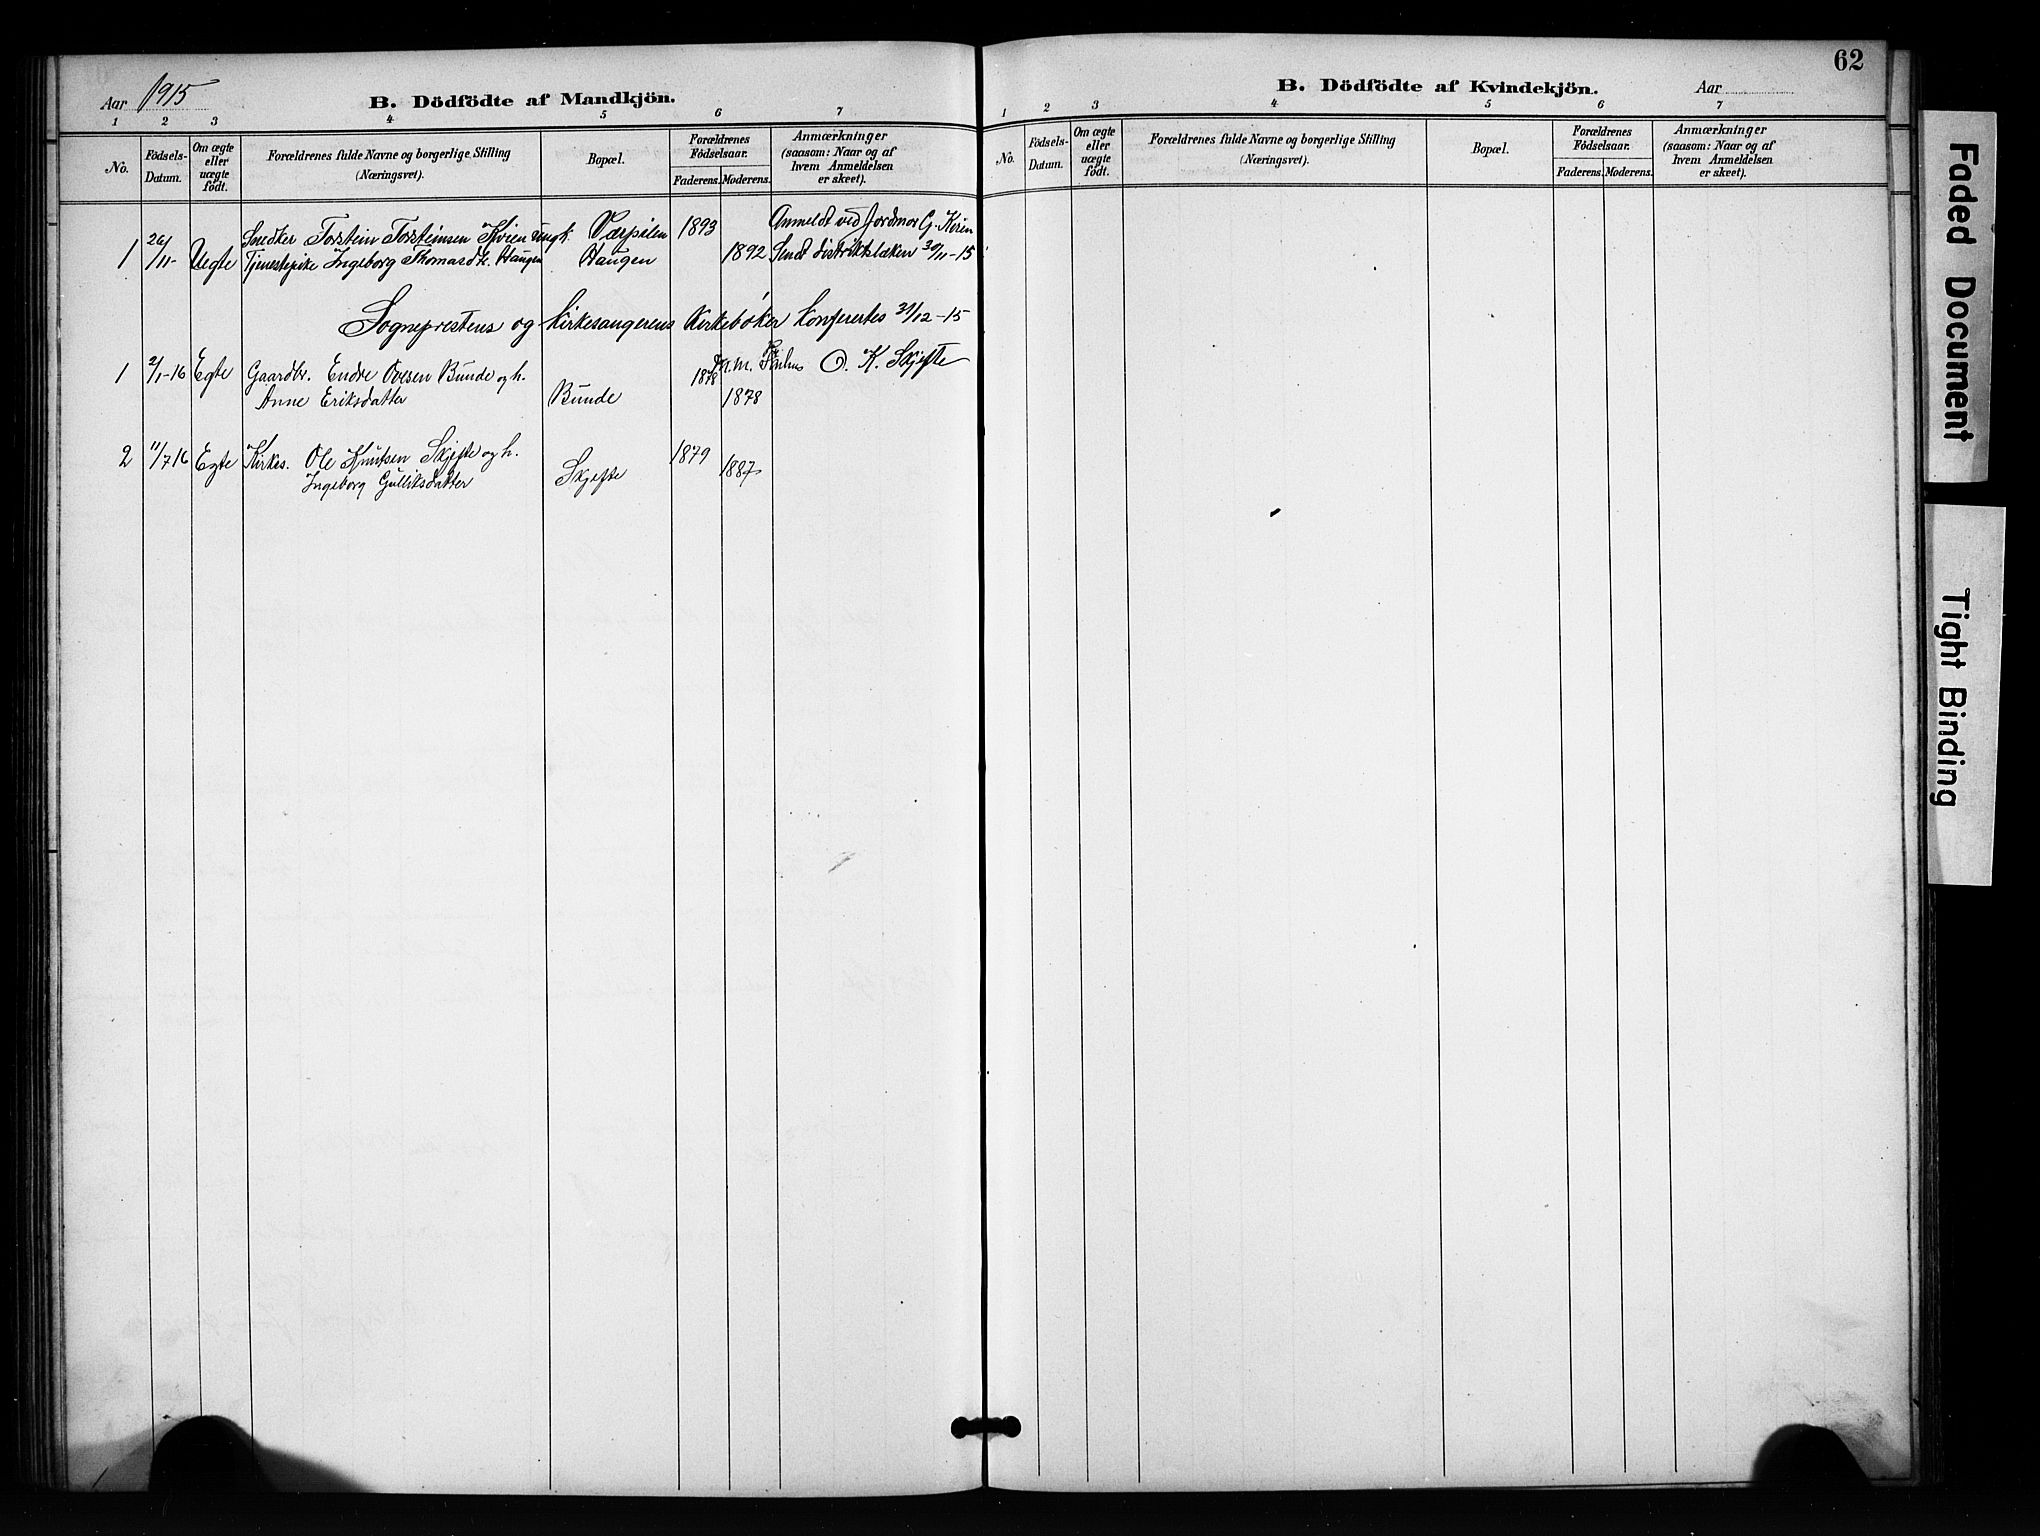 Aar 1915
B. Dödfödte af Mandkjön.
1 2 3 4 5 6 7
No.
Födsels-
Datum.
Om ægte
eller
uægte
födt.
Forældrenes fulde Navne og borgerlige Stilling
(Næringsvei).
Bopæl.
Forældrenes
Födselsaar.
Faderens. Moderens.
Anmærkninger
(saasom: Naar og af
hvem Anmeldelsen
er skeet).
1 26/11- Uegte
Snedker Torstein Torsteinsen Kvien ungk. 1893 Anmeldt ved Jordmor G. Kören
Tjenestepike Ingeborg Thomasdtr. Haugen Haugen 1892 Sendt distriktslæken 30/11-15
Sogneprestens og Kirkesangerens Kirkebøker konferertes 31/12-15
O. K. Skjefte
1 2/1-16 Egte Gaardbr. Endre Ovesen Bunde og h. 1878
Anne Eriksdatter Bunde 1878
2 11/7 16 Egte Kirkes. Ole Knutsen Skjefte og h. 1879
Ingeborg Gulliksdatter Skjefte 1887
62
B. Dödfödte af Kvindekjön.
Aar
1 2 3 4 5 6 7
No.
Födsels-
Datum.
Om ægte
eller
uægte
födt.
Forældrenes fulde Navne og borgerlige Stilling
(Næringsvei).
Bopæl.
Forældrenes
Födselsaar.
Faderens. Moderens.
Anmærkninger
(saasom: Naar og af
hvem Anmeldelsen
er skeet).
Faded Document
Tight Binding